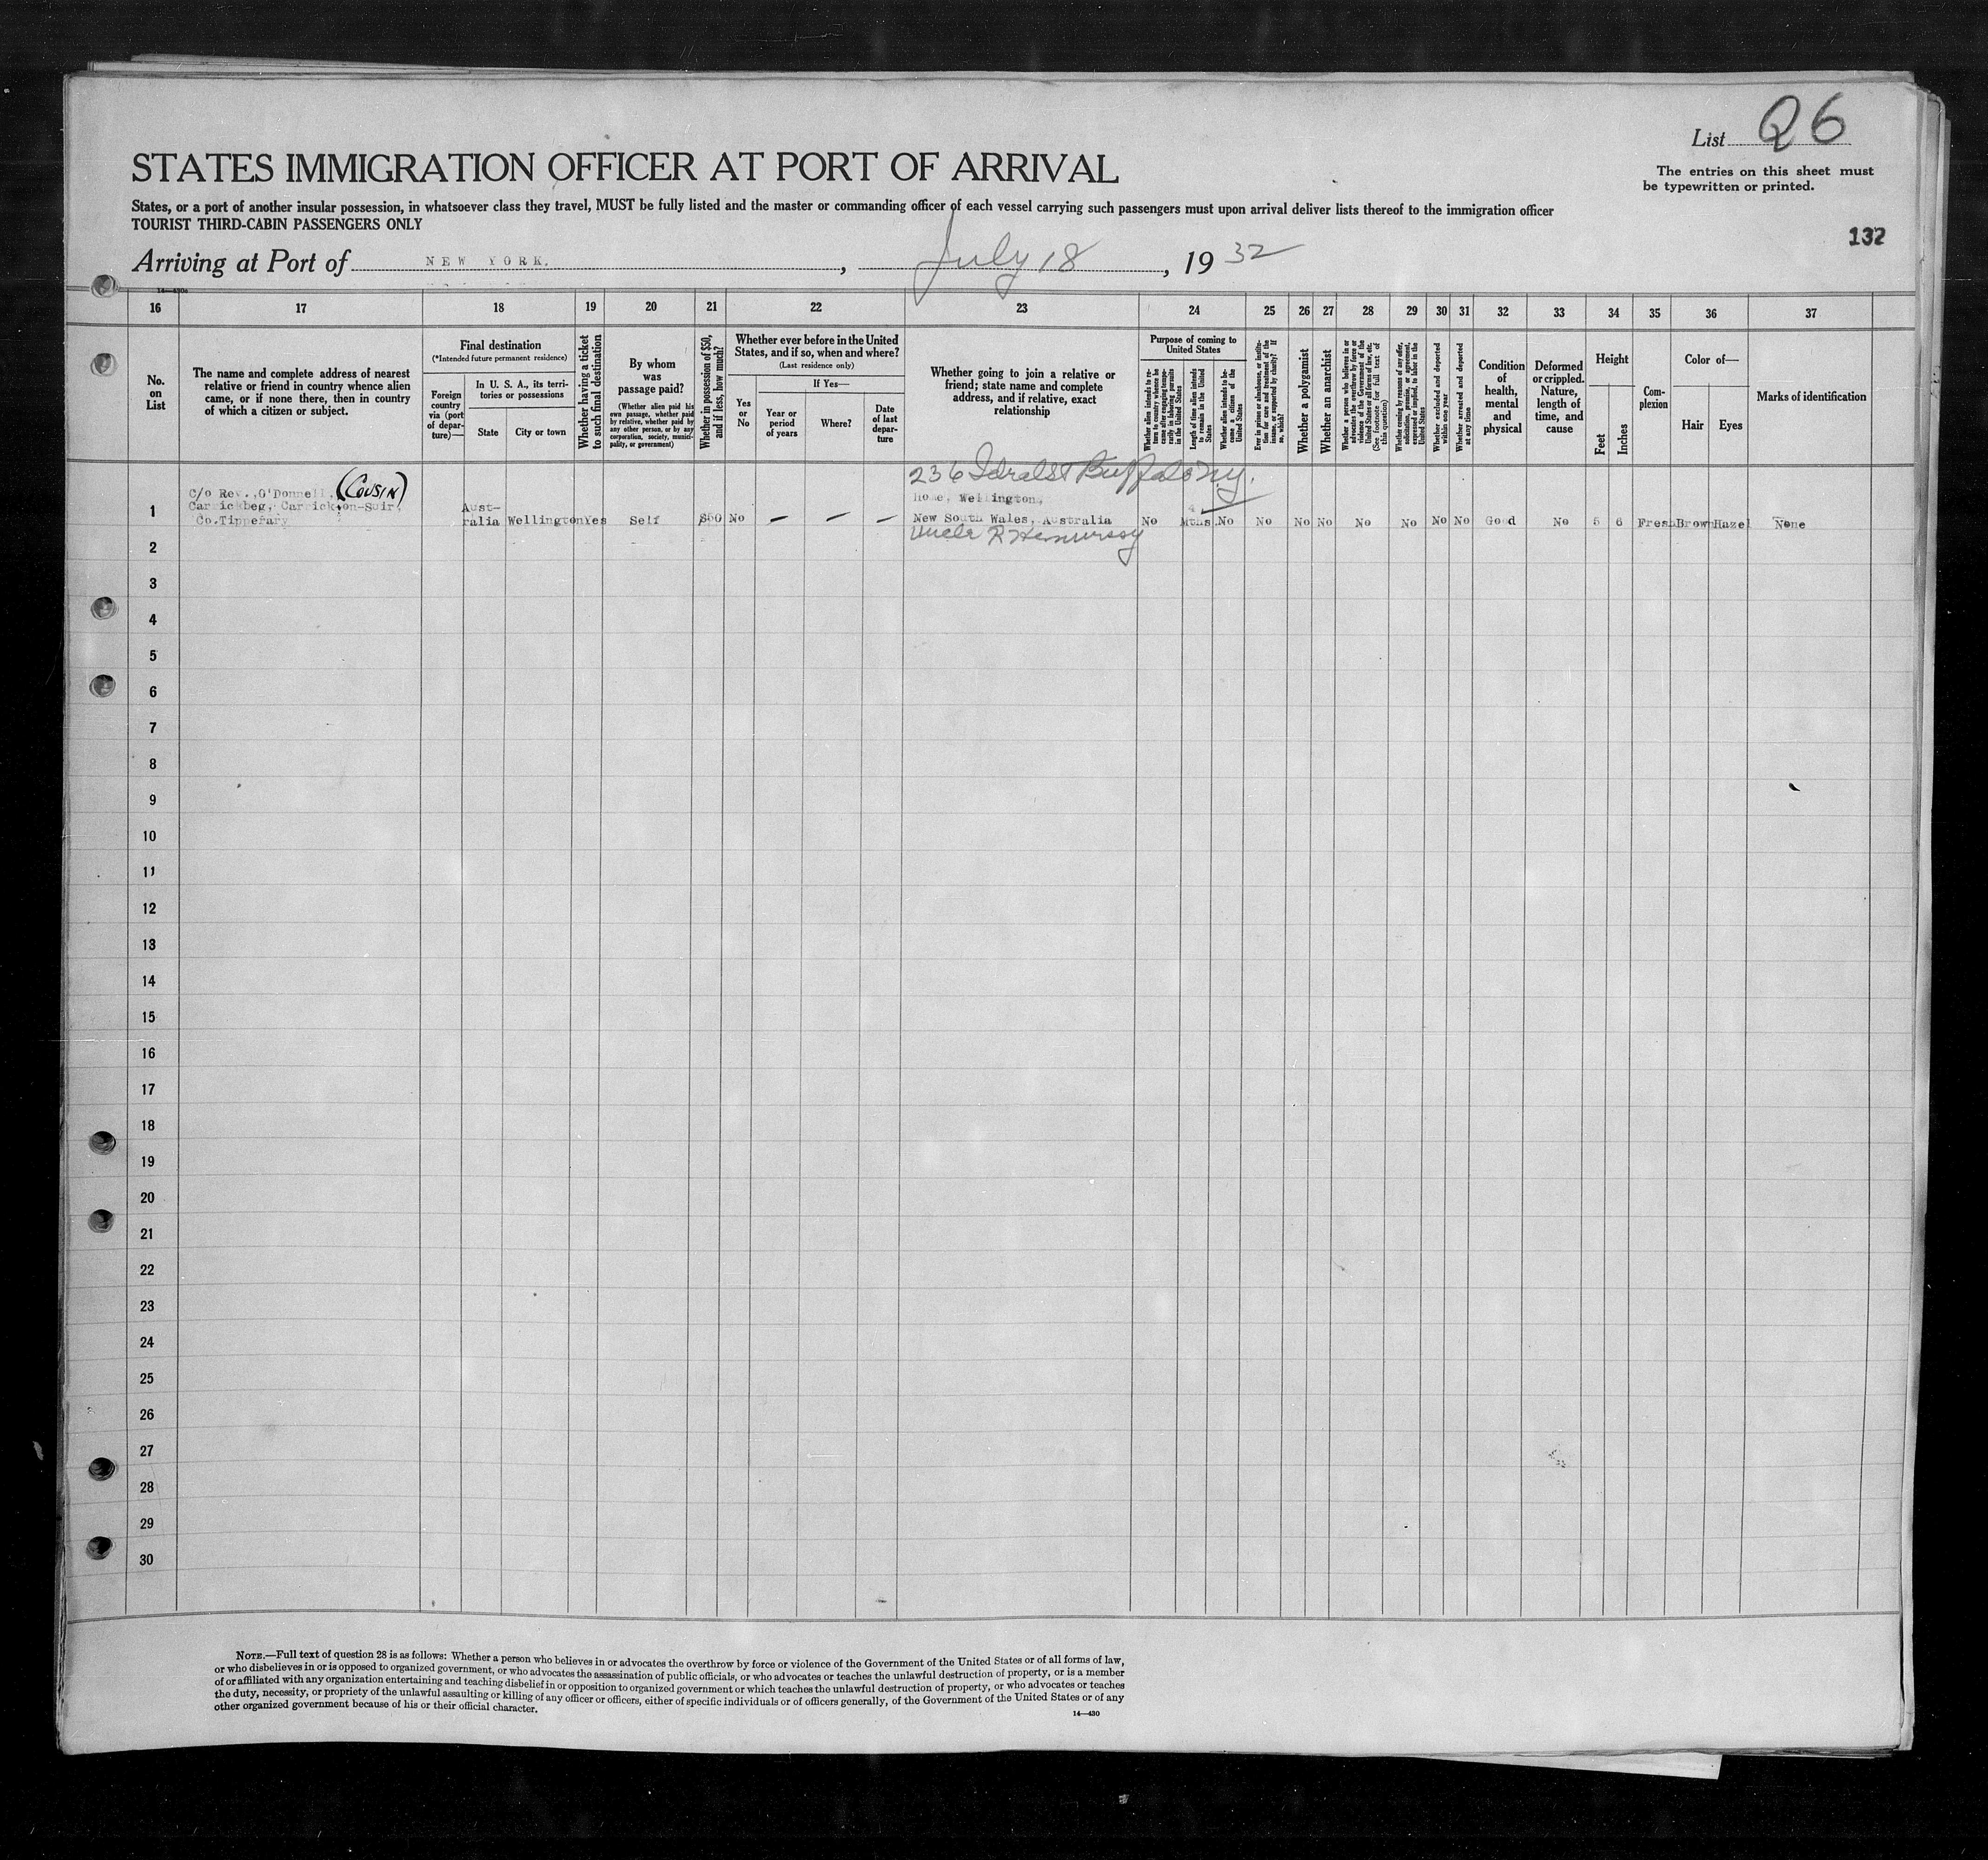 List Q6
The entries on this sheet must
be typewritten or printed.
STATES IMMIGRATION OFFICER AT PORT OF ARRIVAL
States, or a port of another insular possession, in whatsoever class they travel, MUST be fully listed and the master or commanding officer of each vessel carrying such passengers must upon arrival deliver lists thereof to the immigration officer
TOURIST THIRD-CABIN PASSENGERS ONLY
132
Arriving at Port of NEW YORK. , July 18 , 19 32
16 17 18 19 20 21 22 23 24 25 26 27 28 29 30 31 32 33 34 35 36 37
No.
on
List
The name and complete address of nearest
relative or friend in country whence alien
came, or if none there, then in country
of which a citizen or subject.
Final destination
(*Intended future permanent residence)
Foreign
country
via (port
of depar-
ture)—
In U. S. A., its terri-
tories or possessions
State
City or town
Whether having a ticket
to such final destination
By whom
was
passage paid?
(Whether alien paid his
own passage, whether paid
by relative, whether paid by
any other person, or by any
corporation, society, munici-
pality, or government)
Whether in possession of $50,
and if less, how much?
Whether ever before in the United
States, and if so, when and where?
(Last residence only)
Yes
or
No
If Yes—
Year or
period
of years
Where?
Date
of last
depar-
ture
Whether going to join a relative or
friend; state name and complete
address, and if relative, exact
relationship
Purpose of coming to
United States
Whether alien intends to re-
turn to country whence he
came after engaging tempo-
rarily in laboring pursuits
in the United States
Length of time alien intends
to remain in the United
States
Whether alien intends to be-
come a citizen of the
United States
Ever in prison or almshouse, or institu-
tion for care and treatment of the
insane, or supported by charity? If
so, which?
Whether a polygamist
Whether an anarchist
Whether a person who believes in or
advocates the overthrow by force or
violence of the Government of the
United States or all forms of law, etc.
(See footnote for full text of
this question)
Whether coming by reasons of any offer,
solicitation, promise, or agreement,
expressed or implied, to labor in the
United States
Whether excluded and deported
within one year
Whether arrested and deported
at any time
Condition
of
health,
mental
and
physical
Deformed
or crippled.
Nature,
length of
time, and
cause
Height
Feet
Inches
Com-
plexion
Color of—
Hair
Eyes
Marks of identification
236 St Buffalo N.Y.
c/o Rev., O'Donnell, (COUSIN)
Home, Wellington,
Carrickbeg, Carrick-on-Suir,
Aust-
4
1 Co.Tipperary ralia Wellington Yes Self $60 No — — — New South Wales, Australia No Mths. No No No No No No No No Good No 5 6 Fresh Brown Hazel None
Uncle R Hennessy
2
3
4
5
6
7
8
9
10
11
12
13
14
15
16
17
18
19
20
21
22
23
24
25
26
27
28
29
30
NOTE.—Full text of question 28 is as follows: Whether a person who believes in or advocates the overthrow by force or violence of the Government of the United States or of all forms of law,
or who disbelieves in or is opposed to organized government, or who advocates the assassination of public officials, or who advocates or teaches the unlawful destruction of property, or is a member
of or affiliated with any organization entertaining and teaching disbelief in or opposition to organized government or which teaches the unlawful destruction of property, or who advocates or teaches
the duty, necessity, or propriety of the unlawful assaulting or killing of any officer or officers, either of specific individuals or of officers generally, of the Government of the United States or of any
other organized government because of his or their official character.
14—430